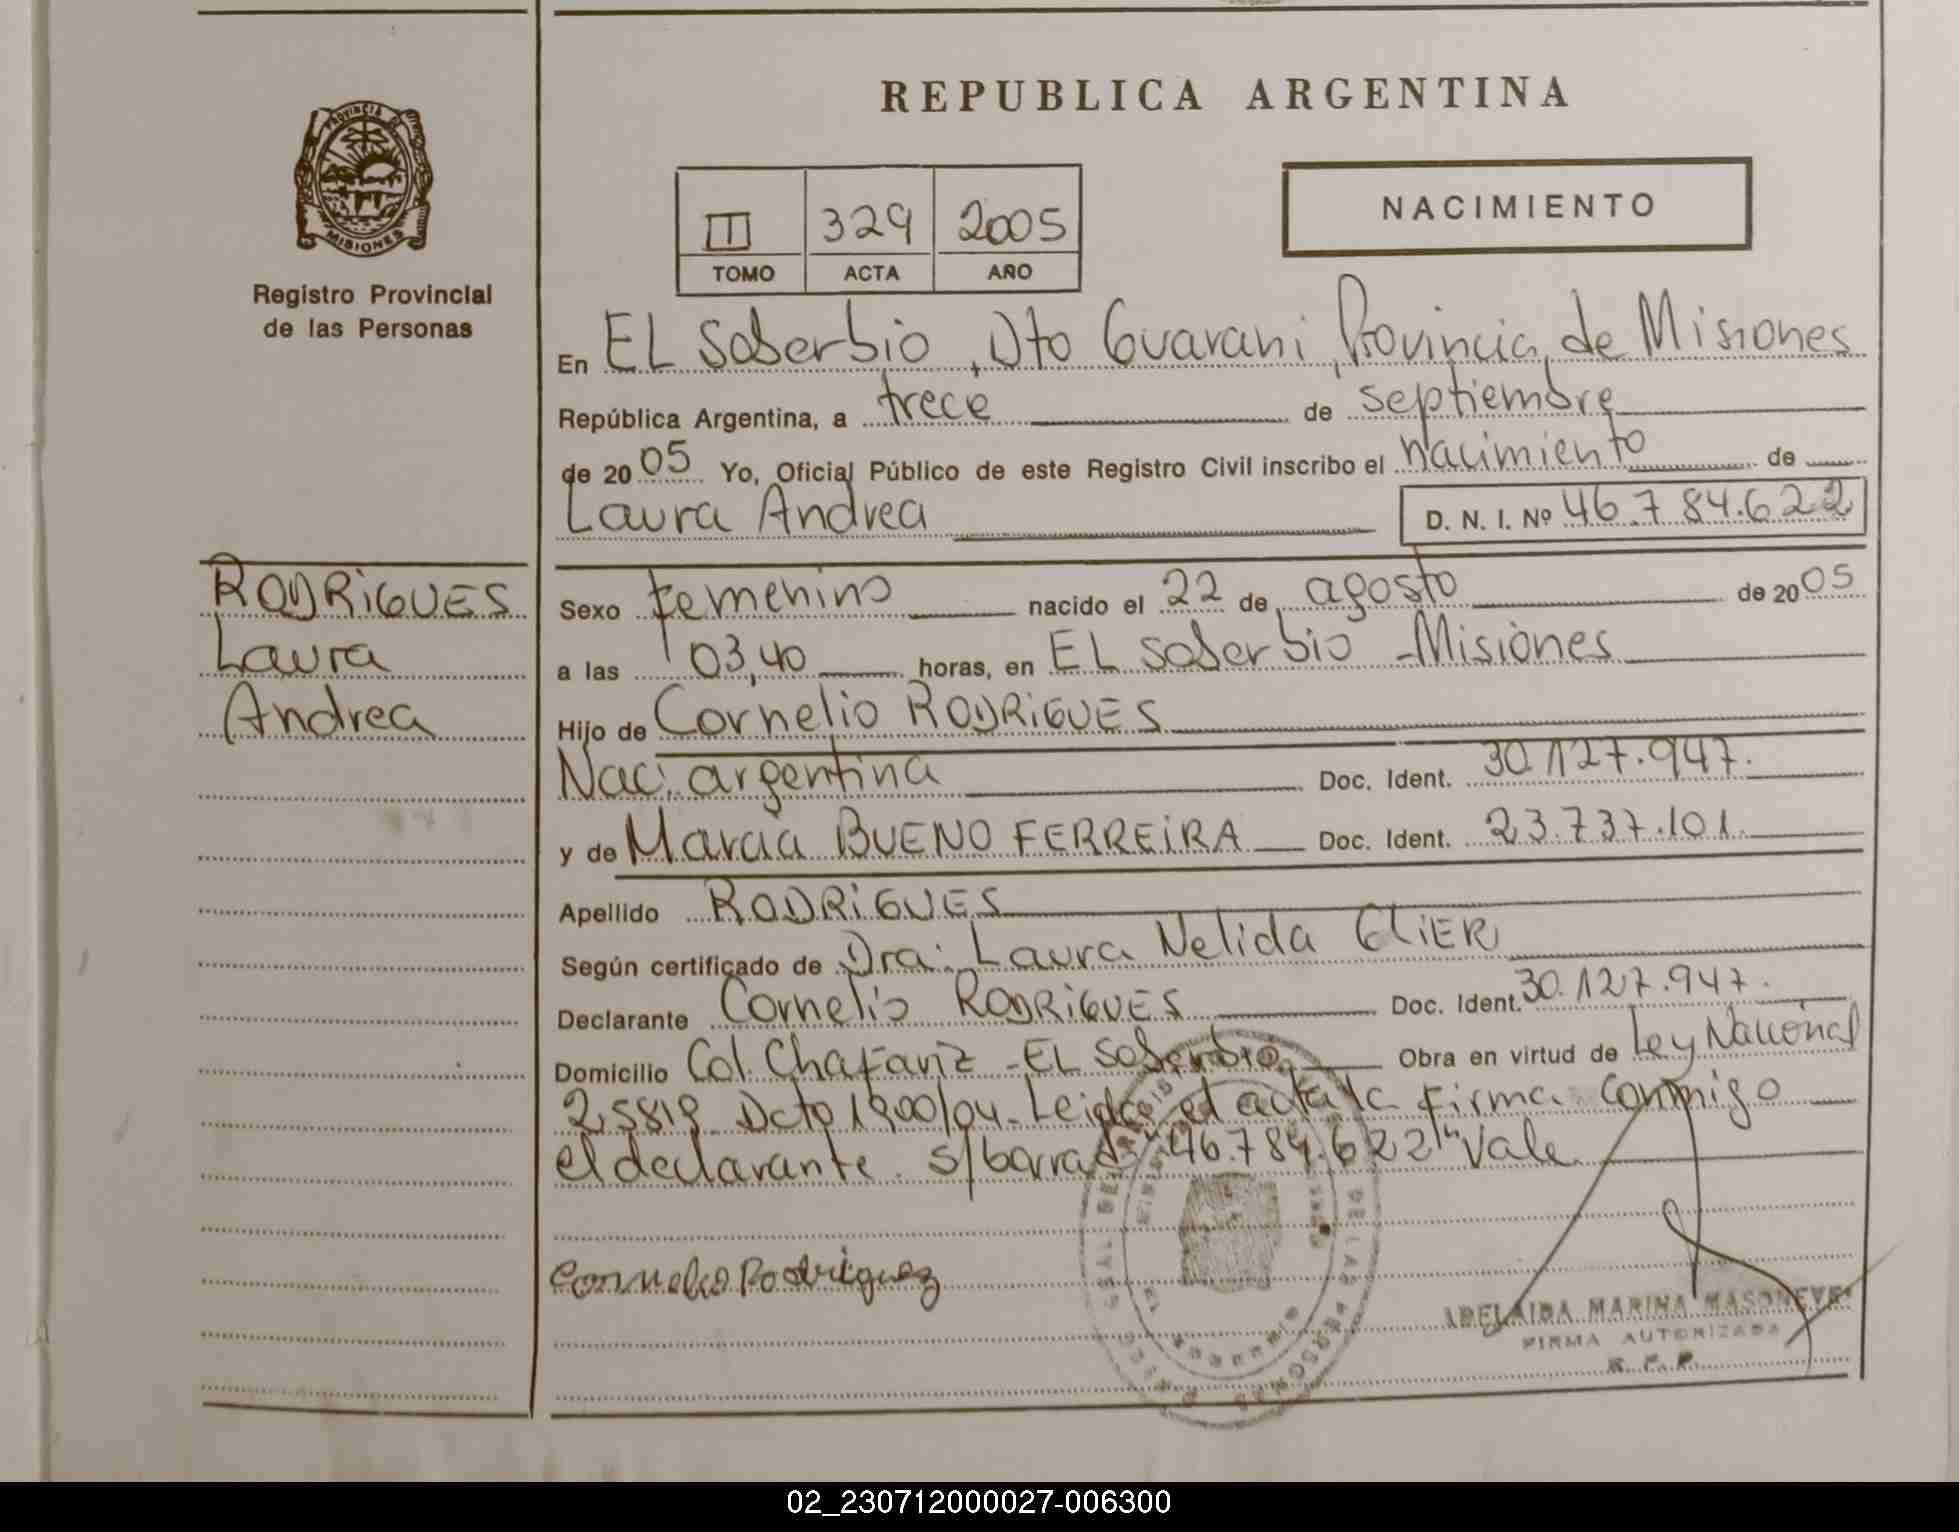 REPUBLICA ARGENTINA
PROVINCIA D
MISIONES
Registro Provincial
de las Personas
II 329 2005
TOMO ACTA AÑO
NACIMIENTO
En EL Soberbio, Dto Guarani, Provincia de Misiones
República Argentina, a trece de septiembre
de 2005 Yo, Oficial Público de este Registro Civil inscribo el nacimiento de
Laura Andrea D. N. I. Nº 46.784.622
RODRiGUES
Laura
Andrea
Sexo femenino nacido el 22 de agosto de 2005
a las 03,40 horas, en EL Soberbio - Misiones
Hijo de Cornelio RODRiGUES
Nac: argentina Doc. Ident. 30.127.947.
y de Marcia BUENO FERREiRA Doc. Ident. 23.737.101.
Apellido RODRiGUES
Según certificado de Dra: Laura Nelida GLiER
Declarante Cornelio RODRiGUES Doc. Ident. 30.127.947.
Domicilio Col. Chafariz - EL Soberbio Obra en virtud de Ley Nacional
25819 Dcto 1900/04. Leida el acta la firma conmigo
el declarante. s/borrado "46.784.622" Vale
Cornelio Rodriguez
ADELAIDA MARINA
FIRMA AUTORIZADA
R. P. P.
02_230712000027-006300